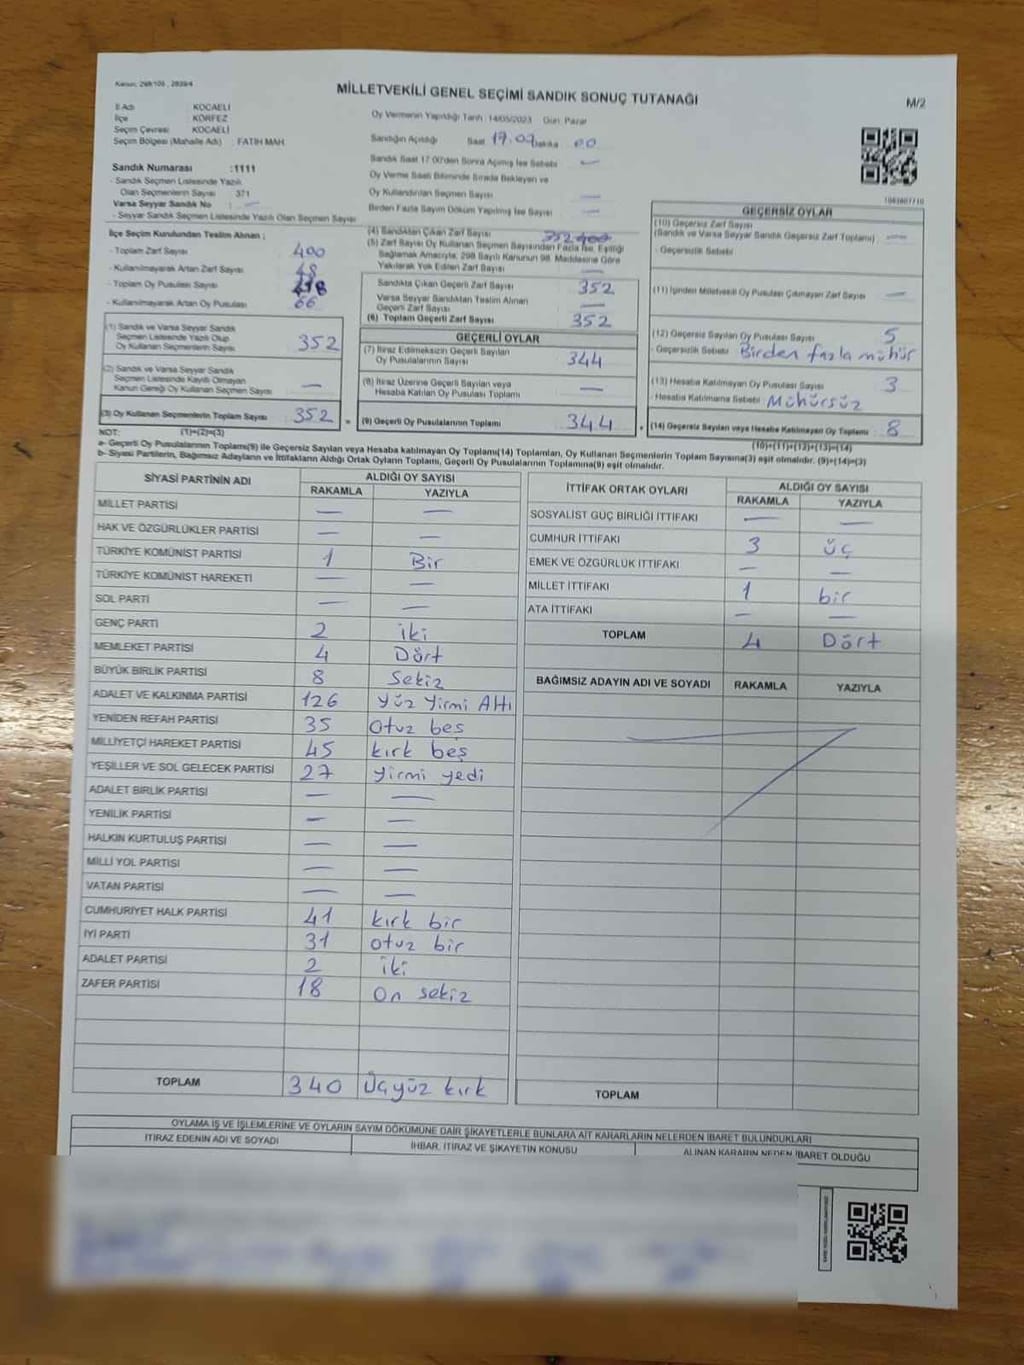 Kanun: 298/105 , 2839/4
MİLLETVEKİLİ GENEL SEÇİMİ SANDIK SONUÇ TUTANAĞI
M/2
İl Adı : KOCAELİ
İlçe : KÖRFEZ
Seçim Çevresi : KOCAELİ
Seçim Bölgesi (Mahalle Adı) : FATİH MAH.
Oy Vermenin Yapıldığı Tarih : 14/05/2023 Gün: Pazar
Sandığın Açıldığı Saat 17.00 Dakika 00
Sandık Saat 17:00'den Sonra Açılmış İse Sebebi —
Oy Verme Saati Bitiminde Sırada Bekleyen ve
Oy Kullandırılan Seçmen Sayısı —
Birden Fazla Sayım Döküm Yapılmış İse Sayısı —
Sandık Numarası :1111
- Sandık Seçmen Listesinde Yazılı
Olan Seçmenlerin Sayısı : 371
Varsa Seyyar Sandık No : —
- Seyyar Sandık Seçmen Listesinde Yazılı Olan Seçmen Sayısı
İlçe Seçim Kurulundan Teslim Alınan ;
- Toplam Zarf Sayısı : 400
- Kullanılmayarak Artan Zarf Sayısı : 48
- Toplam Oy Pusulası Sayısı : 418
- Kullanılmayarak Artan Oy Pusulası : 66
(1) Sandık ve Varsa Seyyar Sandık
Seçmen Listesinde Yazılı Olup
Oy Kullanan Seçmenlerin Sayısı : 352
(2) Sandık ve Varsa Seyyar Sandık
Seçmen Listesinde Kayıtlı Olmayan
Kanun Gereği Oy Kullanan Seçmen Sayısı : —
(3) Oy Kullanan Seçmenlerin Toplam Sayısı : 352
(4) Sandıktan Çıkan Zarf Sayısı 352
(5) Zarf Sayısı Oy Kullanan Seçmen Sayısından Fazla İse, Eşitliği
Sağlamak Amacıyla; 298 Sayılı Kanunun 98. Maddesine Göre
Yakılarak Yok Edilen Zarf Sayısı —
Sandıkta Çıkan Geçerli Zarf Sayısı 352
Varsa Seyyar Sandıktan Teslim Alınan
Geçerli Zarf Sayısı —
(6) Toplam Geçerli Zarf Sayısı 352
GEÇERLİ OYLAR
(7) İtiraz Edilmeksizin Geçerli Sayılan
Oy Pusulalarının Sayısı 344
(8) İtiraz Üzerine Geçerli Sayılan veya
Hesaba Katılan Oy Pusulası Toplamı —
(9) Geçerli Oy Pusulalarının Toplamı 344
1083807710
GEÇERSİZ OYLAR
(10) Geçersiz Zarf Sayısı
(Sandık ve Varsa Seyyar Sandık Geçersiz Zarf Toplamı) : —
- Geçersizlik Sebebi:
(11) İçinden Milletvekili Oy Pusulası Çıkmayan Zarf Sayısı : —
(12) Geçersiz Sayılan Oy Pusulası Sayısı : 5
- Geçersizlik Sebebi: Birden fazla mühür
(13) Hesaba Katılmayan Oy Pusulası Sayısı : 3
- Hesaba Katılmama Sebebi : Mühürsüz
(14) Geçersiz Sayılan veya Hesaba Katılmayan Oy Toplamı : 8
NOT: (1)+(2)=(3)
(10)+(11)+(12)+(13)=(14)
a- Geçerli Oy Pusulalarının Toplamı(9) ile Geçersiz Sayılan veya Hesaba katılmayan Oy Toplamı(14) Toplamları, Oy Kullanan Seçmenlerin Toplam Sayısına(3) eşit olmalıdır. (9)+(14)=(3)
b- Siyasi Partilerin, Bağımsız Adayların ve İttifakların Aldığı Ortak Oyların Toplamı, Geçerli Oy Pusulalarının Toplamına(9) eşit olmalıdır.
SİYASİ PARTİNİN ADI ALDIĞI OY SAYISI
RAKAMLA YAZIYLA
MİLLET PARTİSİ — —
HAK VE ÖZGÜRLÜKLER PARTİSİ — —
TÜRKİYE KOMÜNİST PARTİSİ 1 Bir
TÜRKİYE KOMÜNİST HAREKETİ — —
SOL PARTİ — —
GENÇ PARTİ 2 iki
MEMLEKET PARTİSİ 4 Dört
BÜYÜK BİRLİK PARTİSİ 8 Sekiz
ADALET VE KALKINMA PARTİSİ 126 Yüz Yirmi Altı
YENİDEN REFAH PARTİSİ 35 Otuz beş
MİLLİYETÇİ HAREKET PARTİSİ 45 kırk beş
YEŞİLLER VE SOL GELECEK PARTİSİ 27 Yirmi yedi
ADALET BİRLİK PARTİSİ — —
YENİLİK PARTİSİ — —
HALKIN KURTULUŞ PARTİSİ — —
MİLLİ YOL PARTİSİ — —
VATAN PARTİSİ — —
CUMHURİYET HALK PARTİSİ 41 kırk bir
İYİ PARTİ 31 otuz bir
ADALET PARTİSİ 2 iki
ZAFER PARTİSİ 18 On sekiz
TOPLAM 340 Üçyüz kırk
İTTİFAK ORTAK OYLARI ALDIĞI OY SAYISI
RAKAMLA YAZIYLA
SOSYALİST GÜÇ BİRLİĞİ İTTİFAKI — —
CUMHUR İTTİFAKI 3 üç
EMEK VE ÖZGÜRLÜK İTTİFAKI — —
MİLLET İTTİFAKI 1 bir
ATA İTTİFAKI — —
TOPLAM 4 Dört
BAĞIMSIZ ADAYIN ADI VE SOYADI RAKAMLA YAZIYLA
TOPLAM
OYLAMA İŞ VE İŞLEMLERİNE VE OYLARIN SAYIM DÖKÜMÜNE DAİR ŞİKAYETLERLE BUNLARA AİT KARARLARIN NELERDEN İBARET BULUNDUKLARI
İTİRAZ EDENİN ADI VE SOYADI İHBAR, İTİRAZ VE ŞİKAYETİN KONUSU ALINAN KARARIN NEDEN İBARET OLDUĞU